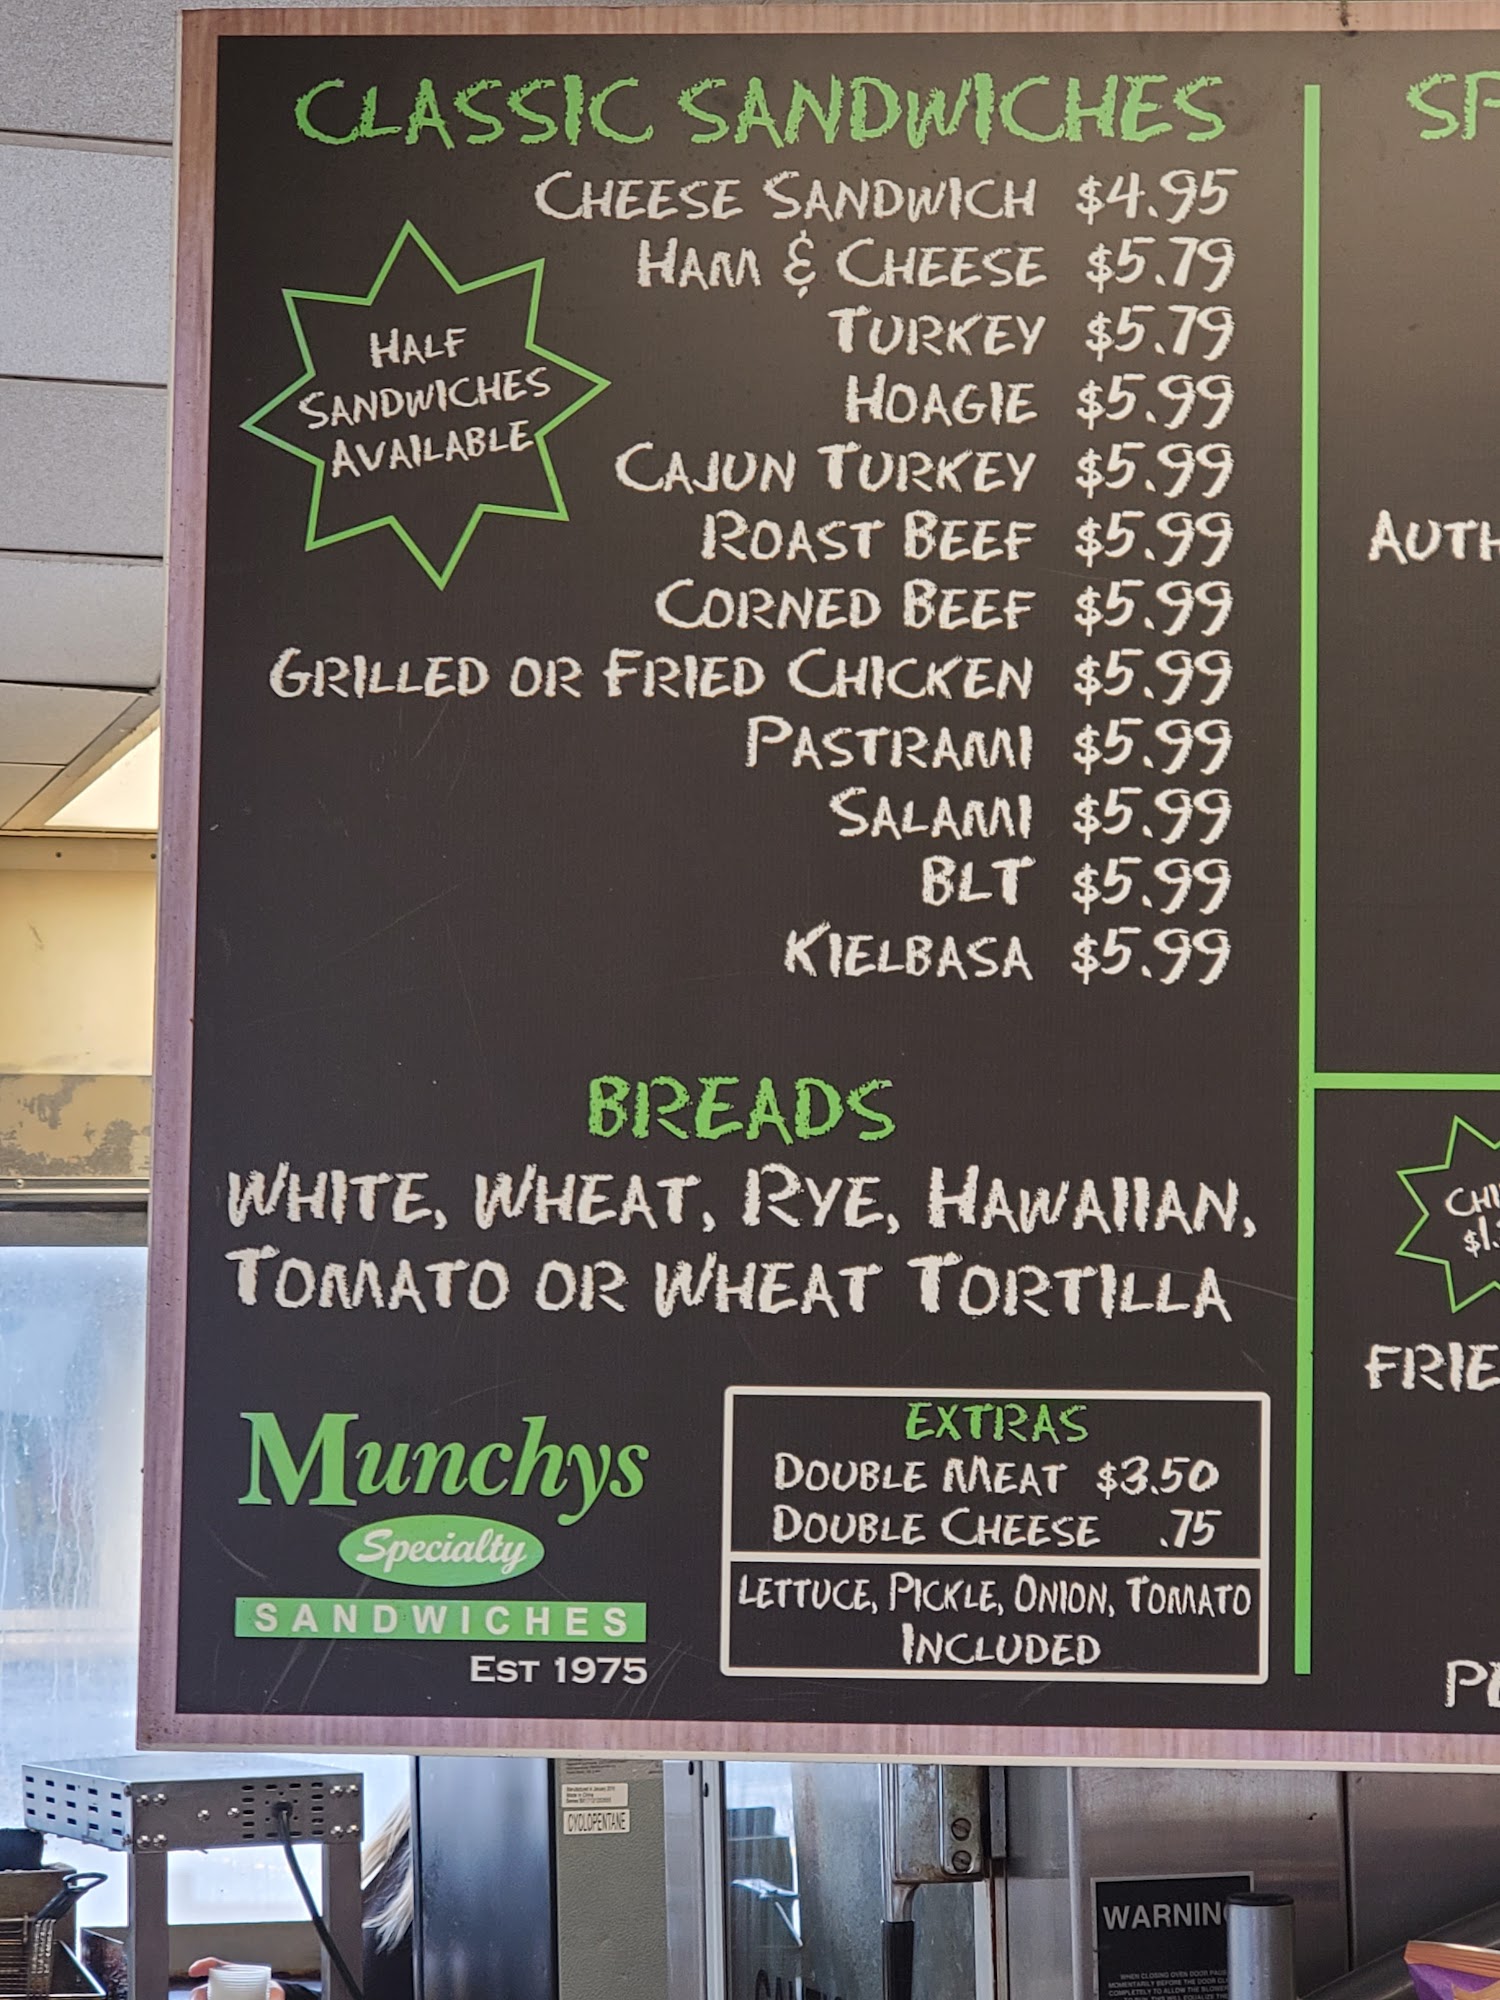 CLASSIC SANDWICHES
CHEESE SANDWICH $4.95
HAM & CHEESE $5.79
TURKEY $5.79
HOAGIE $5.99
CAJUN TURKEY $5.99
ROAST BEEF $5.99
CORNED BEEF $5.99
GRILLED OR FRIED CHICKEN $5.99
PASTRAMI $5.99
SALAMI $5.99
BLT $5.99
KIELBASA $5.99
HALF
SANDWICHES
AVAILABLE
BREADS
WHITE, WHEAT, RYE, HAWAIIAN,
TOMATO OR WHEAT TORTILLA
Munchys
Specialty
SANDWICHES
EST 1975
EXTRAS
DOUBLE MEAT $3.50
DOUBLE CHEESE .75
LETTUCE, PICKLE, ONION, TOMATO
INCLUDED
SP
AUTH
CHI
$1.
FRIE
PE
CYCLOPENTANE
WARNIN
WHEN CLOSING OVEN DOOR PAUSE
MOMENTARILY BEFORE THE DOOR CL
COMPLETELY TO ALLOW THE BLOWER